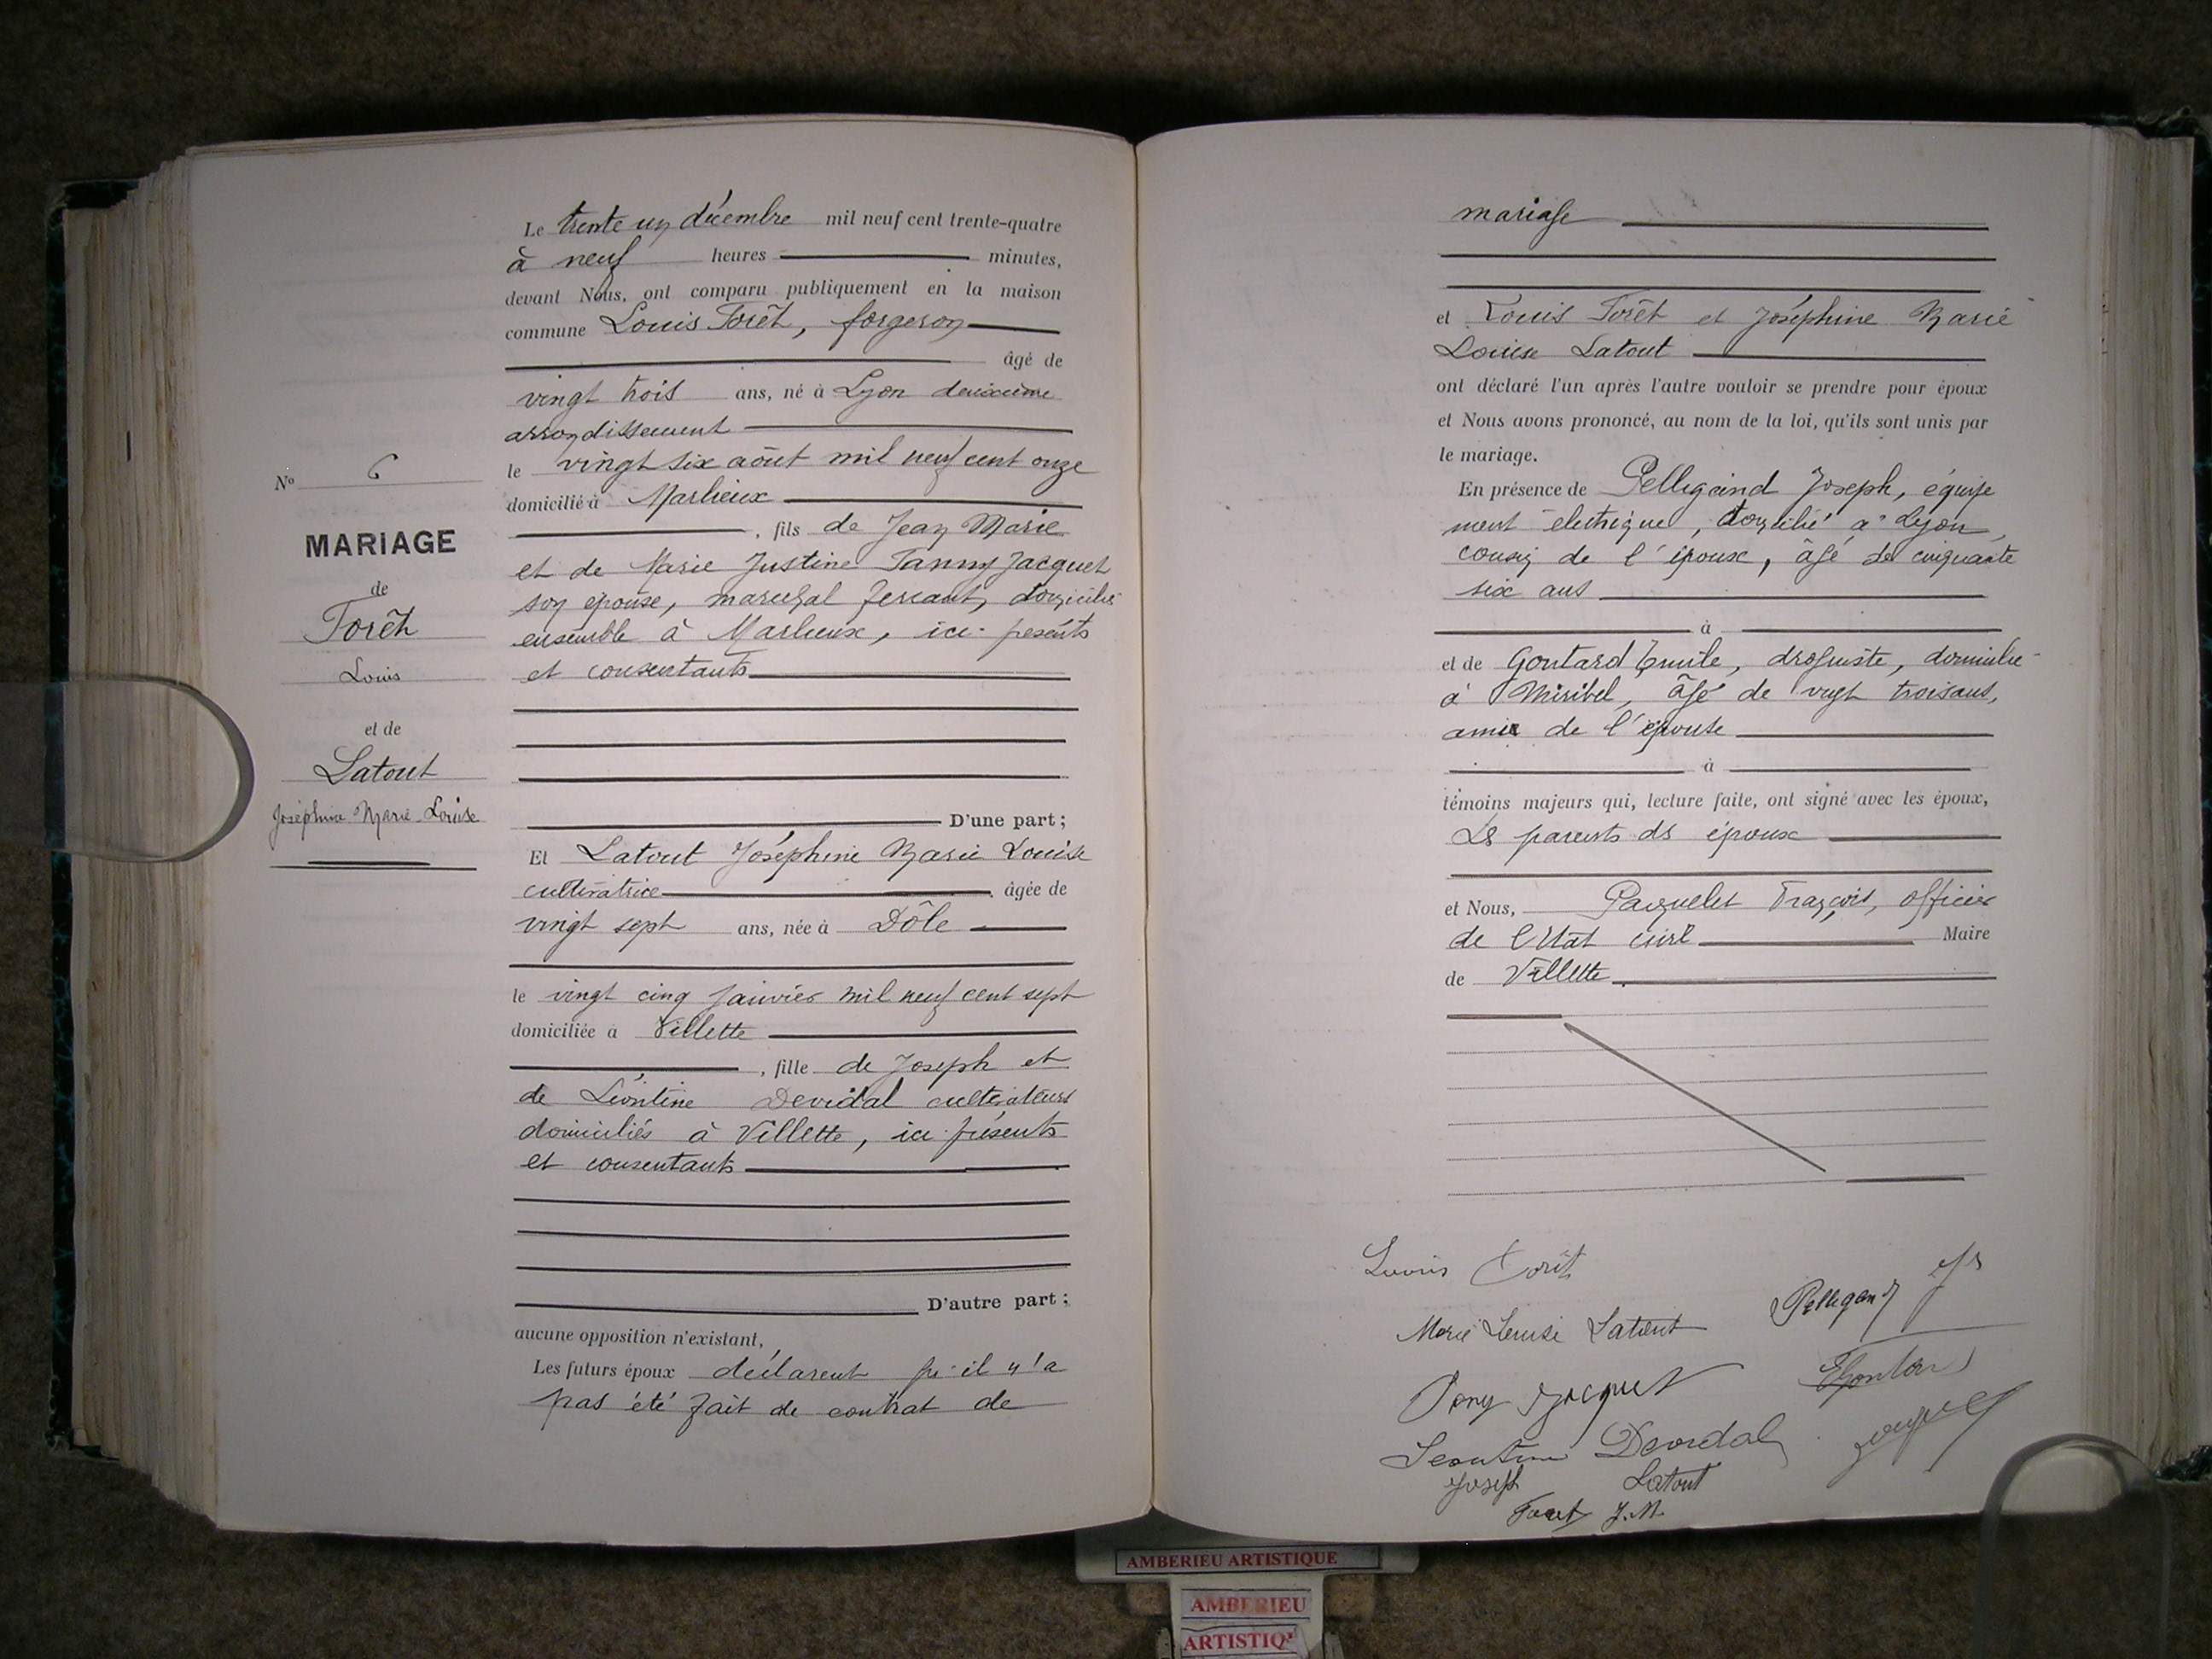 N° 6
MARIAGE
de
Forêt
Louis
et de
Latout
Joséphine Marie Louise
Le trente un décembre mil neuf cent trente-quatre
à neuf heures minutes,
devant Nous, ont comparu publiquement en la maison
commune Louis Forêt, forgeron
âgé de
vingt trois ans, né à Lyon deuxième
arrondissement
le vingt six août mil neuf cent onze
domicilié à Marlieux
, fils de Jean Marie
et de Marie Justine Fanny Jacquet
son épouse, maréchal ferrant, domiciliés
ensemble à Marlieux, ici présents
et consentants
D'une part;
Et Latout Joséphine Marie Louise
cultivatrice âgée de
vingt sept ans, née à Dôle
le vingt cinq janvier mil neuf cent sept
domiciliée à Villette
, fille de Joseph et
de Léontine Devidal cultivateurs
domiciliés à Villette, ici présents
et consentants
D'autre part;
aucune opposition n'existant,
Les futurs époux déclarent qu'il n'a
pas été fait de contrat de
mariage
et Louis Forêt et Joséphine Marie
Louise Latout
ont déclaré l'un après l'autre vouloir se prendre pour époux
et Nous avons prononcé, au nom de la loi, qu'ils sont unis par
le mariage.
En présence de Joseph, équipe
ment électrique, domicilié à Lyon,
cousin de l'époux, âgé de cinquante
six ans
à
et de Goutard Emile, droguiste, domicilié
à Miribel, âgé de vingt trois ans,
amie de l'épouse
à
témoins majeurs qui, lecture faite, ont signé avec les époux,
Les parents des époux
et Nous, François, officier
de l'Etat civil Maire
de Villette
Louis Forêt
Marie Louise Latout
Fany Jacquet
Leontine Devidal
Joseph Latout
Foret J.M.
AMBERIEU ARTISTIQUE
AMBERIEU
ARTISTIQ